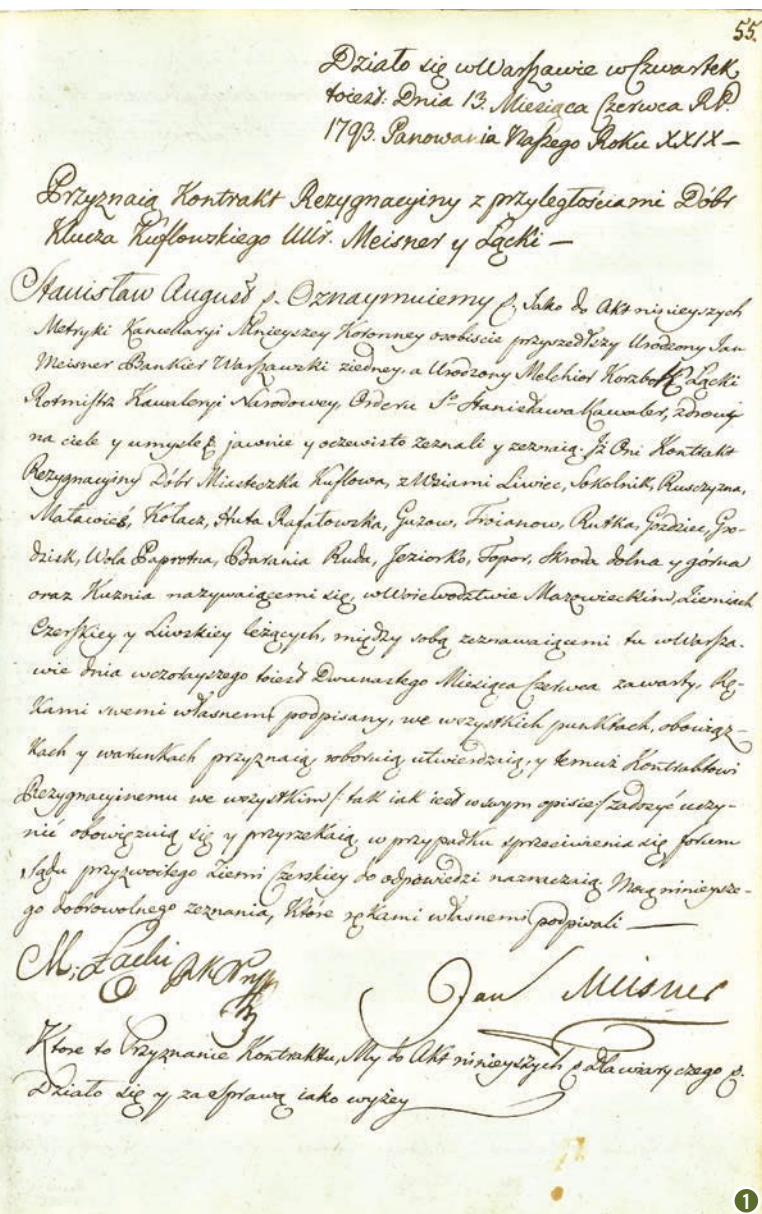 55.
Działo się w Warszawie w Czwartek
toiest: Dnia 13. Miesiąca Czerwca R.P.
1793. Panowania Naszego Roku XXIX —
Przyznaią Kontrakt Rezygnacyiny z przyległościami Dóbr
Klucza Kuflowskiego UUr. Meisner y Łącki —
Stanisław August p. Oznaymuiemy p. Jako do Akt ninieyszych
Metryki Kancellaryi Mnieyszey Koronney osobiscie przyszedłszy Urodzony Jan
Meisner Bankier Warszawski ziedney, a Urodzony Melchior Korzbok Łącki
Rotmistrz Kawaleryi Narodowey, Orderu Sgo Stanisława Kawaler, zdrowi
na ciele y umysle jawnie y oczewisto zeznali y zeznaią. Jż Oni Kontrakt
Rezygnacyiny Dóbr Miasteczka Kuflowa, z Wsiami Liwiec, Sokolnik, Rusczyzna,
Maławieś, Kołacz, Huta Rafałowska, Guzow, Troianow, Rutka, Gozdziec, Gro-
dzisk, Wola Paprotna, Barania Ruda, Jeziorko, Topor, Skroda dolna y górna
oraz Kuznia nazywaiącemi się, w Woiewodztwie Mazowieckim, Ziemiach
Czerskiey y Liwskiey leżących, między sobą zeznawaiącemi tu w Warsza-
wie dnia wczorayszego toiest Dwunastego Miesiąca Czerwca zawarty, Rę-
kami swemi własnemi podpisany, we wszystkich punktach, obowiąz-
kach y warunkach przyznaią, roboruią utwierdzaią, y temuż Kontraktowi
Rezygnacyinemu we wszystkim /: tak iak iest w swym opisie :/ zadosyć uczy-
nić obowięzuią się y przyrzekaią, w przypadku sprzeciwienia się forum
Sądu przyzwoitego Ziemi Czerskiey do odpowiedzi naznaczaią. Mocą ninieysze-
go dobrowolnego zeznania, Które rękami własnemi podpisali —
M. Łącki
Jan Meisner
Ktore to Przyznanie Kontraktu, My do Akt ninieyszych p. dla wiary czego p.
Działo się y za Sprawą iako wyżey
1